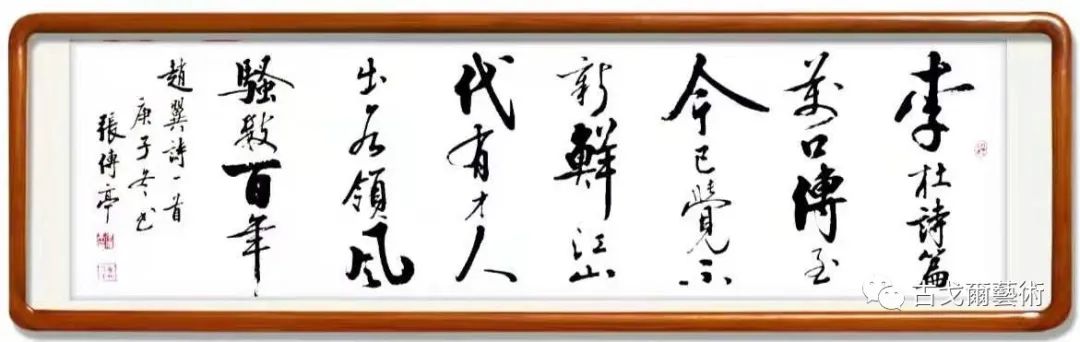 李杜詩篇
萬口傳至
今已覺不
新鮮江山
代有才人
出各領風
騷數百年
趙翼詩一首
庚子冬書
張傳亭
古戈爾藝術